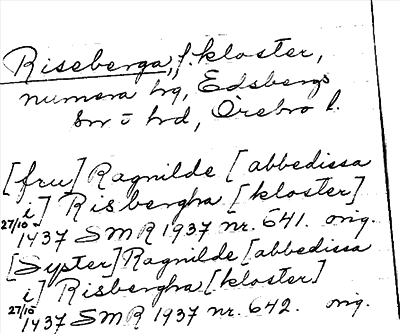 Riseberga, f. kloster,
numera hg, Edsbergs
sn o hd, Örebro l.
[fru] Ragnilde [abbedissa
i] Risbergha [kloster]
27/10 1437 SMR 1937 nr. 641. orig.
[Syster] Ragnilde [abbedissa
i] Risbergha [kloster]
27/10 1437 SMR 1937 nr. 642. orig.